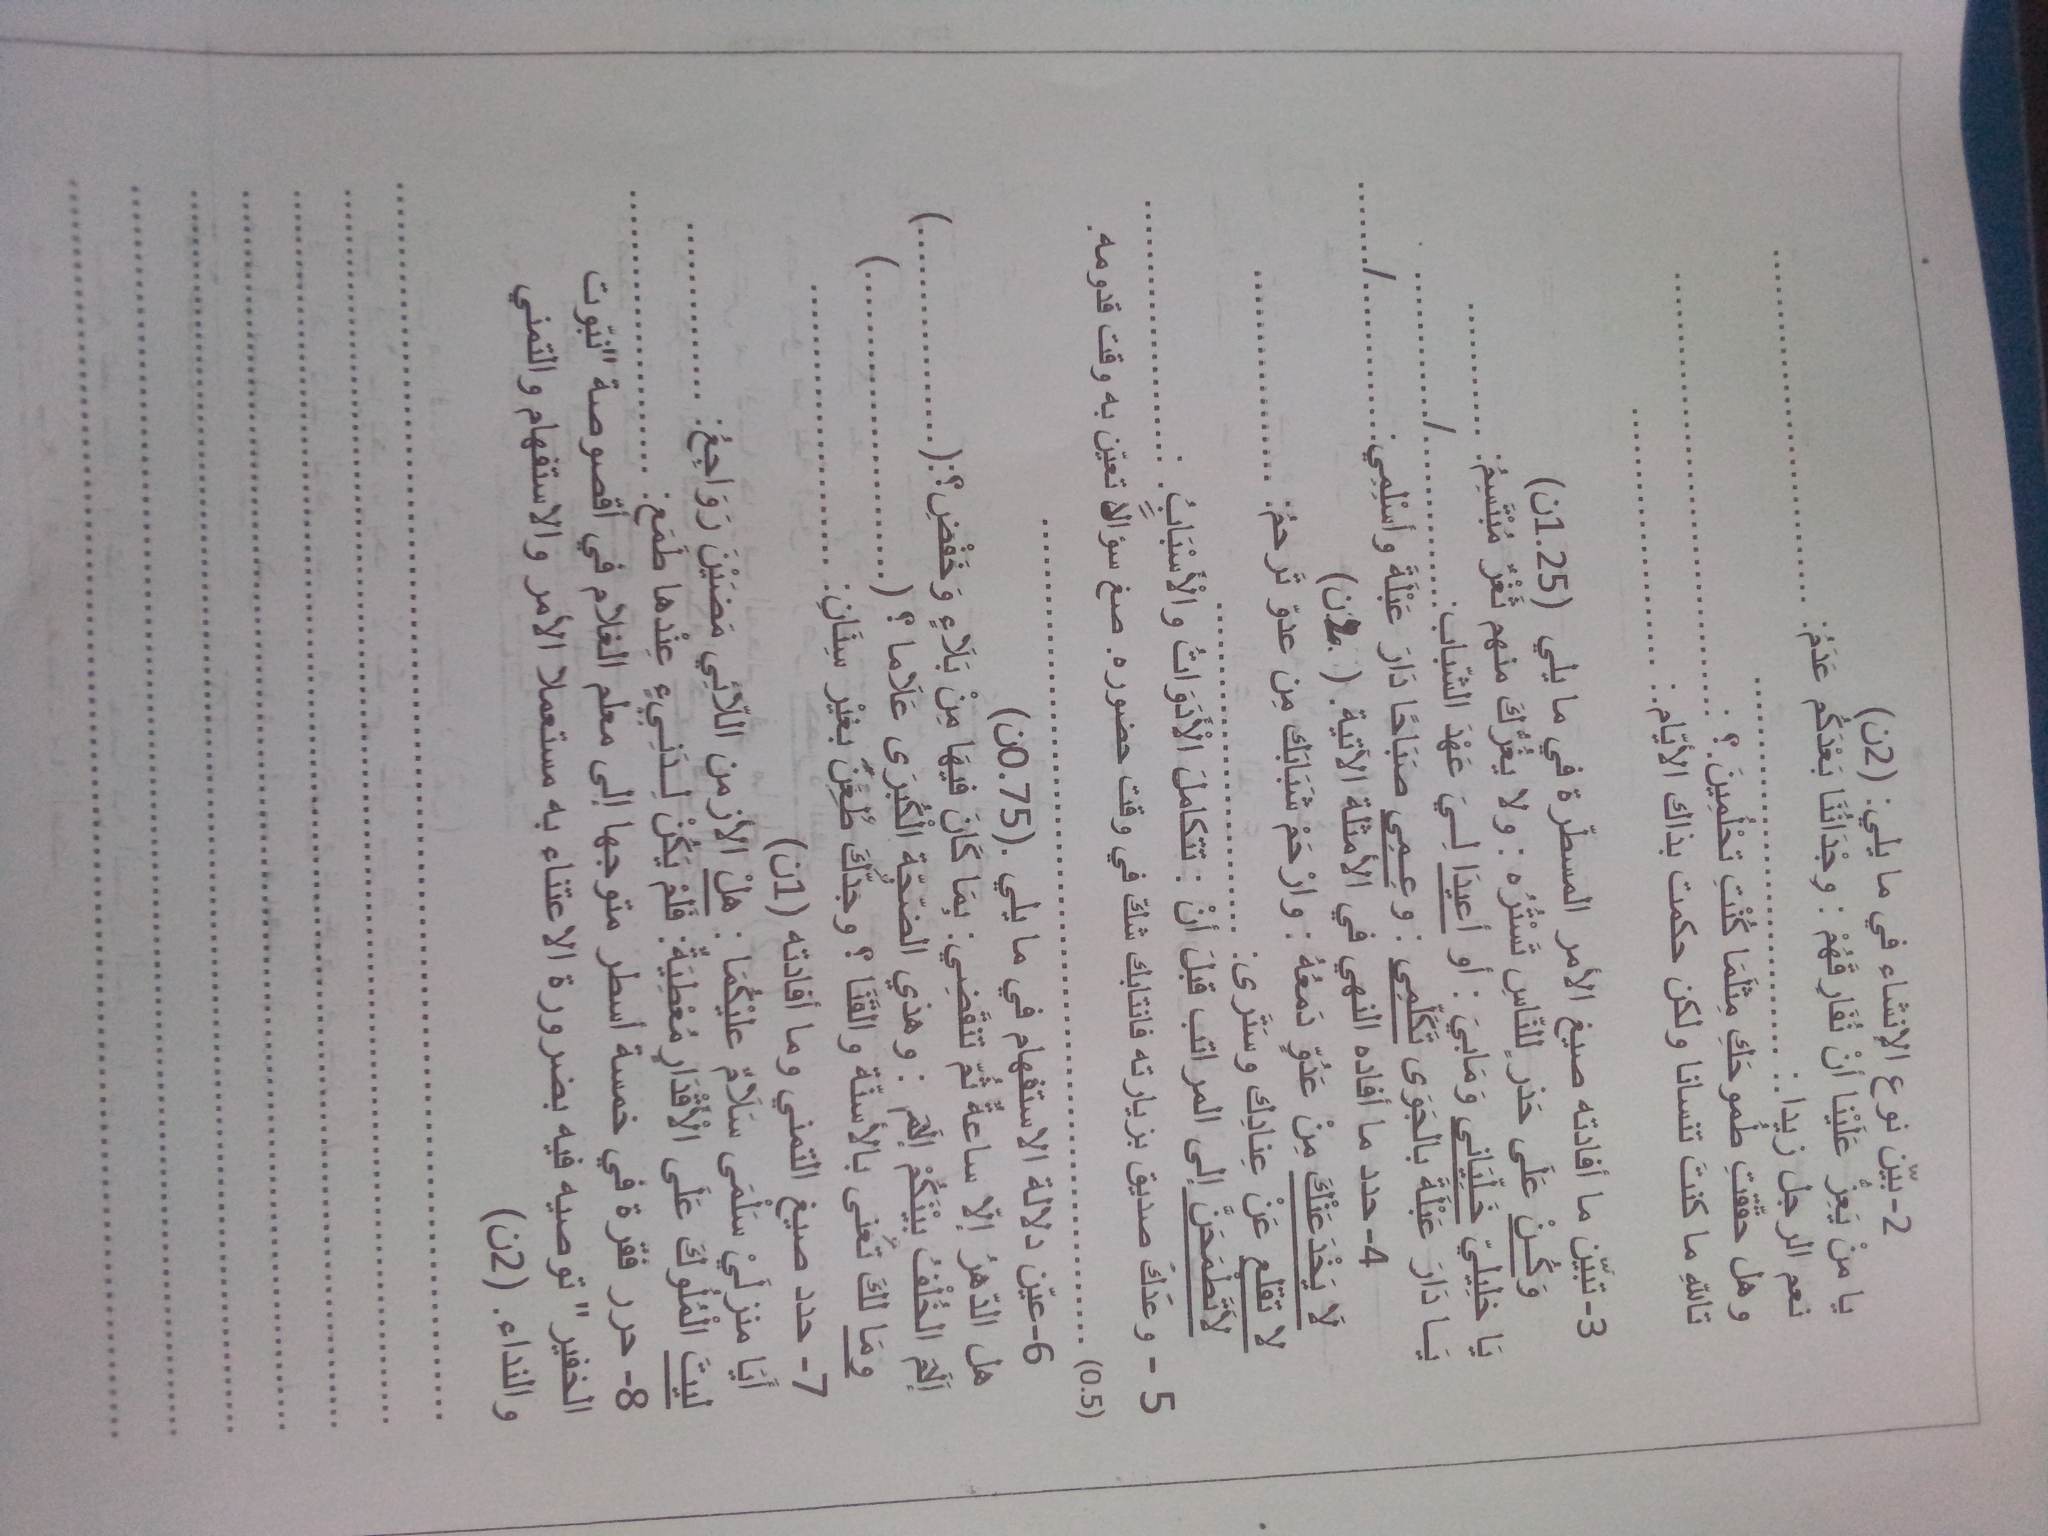 2- بيّن نوع الإنشاء في ما يلي: (2ن)
يا مَنْ يَعِزُّ عَلَيْنا أنْ نُفَارِقَهُمْ : وِجْدَانُنَا بَعْدَكُم عَدَمُ: ........................................
نعم الرجل زيدا.: ........................................
و هل حقّقْتِ طُموحَكِ مِثلَمَا كُنْتِ تَحْلُمِينَ.؟ : ........................................
تاللّهِ ما كنتَ تنسانا ولكن حكمت بذاك الأيّام.: ........................................
3- تبيّن ما أفادته صيغ الأمر المسطّرة في ما يلي (1.25ن)
وَكُــنْ عَلَى حَذرٍ للنّاسِ تَسْتُرُه : ولا يغُرُّكَ منهم ثَغْرٌ مُبْتَسِمُ: ..............
يَا خليليّ خَلِّيَانِي وَمَابِيَ : أو أعيدَا لــيَ عَهْدَ الشّباب: ................/..............
يَــا دَارَ عَبْلَةَ بالجَوَى تَكَلّمِي : وعِــمِي صبَاحًا دَارَ عَبْلَةَ وأسْلِمِي: ................/..........
4- حدد ما أفاده النهي في الأمثلة الآتية. (2ن)
لَا يَخْدَعَنّكَ مِنْ عَدُوٍّ دَمعُهُ : وارْحَمْ شَبَابَك مِن عدوّ تَرحمُ: ......................
لا تقلع عَنْ عِنادِك وسَتَرى: ........................................
لَاتَطْمَحَنَّ إلى المراتب قبلَ أنْ : تتكاملَ الْأدَوَاتُ والْأسْبَابُ : ........................
5 - وعدَكَ صديق بزيارته فانتابك شكّ في وقت حضوره. صغ سؤالا تعيّن به وقت قدومه.
(0.5) ........................................................................
6-عيّن دلالة الاستفهام في ما يلي .(0.75ن)
هل الدّهرُ إلّا ساعةٌ ثُمّ تنقَضِي: بِمَا كَانَ فيهَا مِنْ بَلَاءٍ وَخَفْضِ؟:(........................)
إلَامَ الخُلْفُ بيْنَكُمْ إلَامَ : وهذي الضّجّة الْكُبرَى عَلَاما ؟ (................................)
ومَا لكَ تُعنى بالأسنّة والقَنَا ؟ وجدُّكَ طَعَّنٌ بغيْر سِنَانِ: ................................
7- حدد صيغ التمني وما أفادته (1ن)
أيَا منزلَيْ سَلْمَى سَلَامٌ عليْكُمَا : هلْ الأزمن اللّائِي مَضَيْنَ رَوَاجِعُ: ....................
ليتَ الْمُلُوكَ عَلَى الْأقْدَارِ مُعْطِيَةٌ: فَلمْ يَكُنْ لــدَنِــيءٍ عِنْدها طَمَع: ............................
8- حرر فقرة في خمسة أسطر متوجها إلى معلم الغلام في أقصوصة "نبّوت
الخفير" توصيه فيه بضرورة الاعتناء به مستعملا الأمر والاستفهام والتمني
والنداء. (2ن)